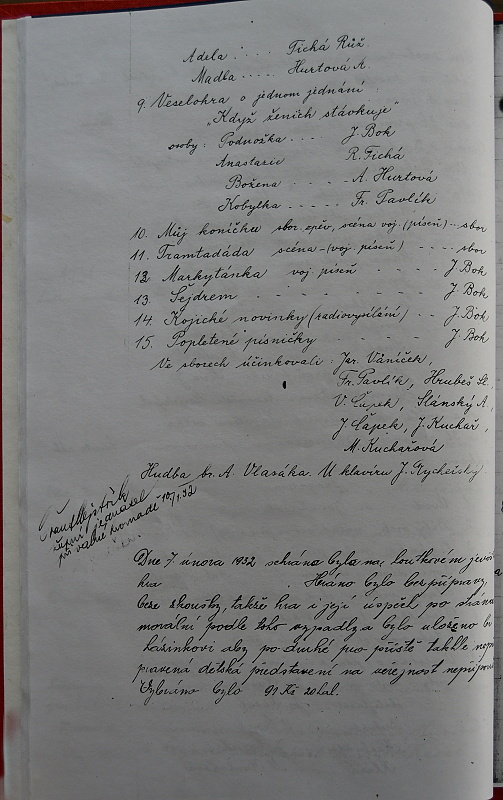 Adela . . . . Tichá Růž.
Madla . . . . Hurtová A.
9. Veselohra o jednom jednání
"Když ženich stávkuje"
osoby: Podnožka . . . J. Bok
Anastazie R. Tichá
Božena . . . . A. Hurtová
Kobylka . . . . . Fr. Pavlík
10. Můj koníčku sbor. zpěv, scéna voj. (píseň) . . sbor
11. Tramtadáda scéna - (voj. píseň) - - - - sbor
12. Markytánka voj. píseň - - - - J. Bok
13. Šejdrem - - - - - - - J. Bok
14. Kojické novinky (radiovysílání) - - J. Bok
15. Popletené písničky - - - - J. Bok
Ve sborech účinkovali: Jar. Váníček,
Fr. Pavlík, Hrubeš Sl.
V. Čapek, Slánský A.,
J. Čapek, J. Kuchař,
M. Kuchařová
Hudba br. A. Vlasáka. U klavíru J. Rychetský.
župní jednatel
při valné hromadě 10/1.32
Dne 7. února 1932 sehrána byla na loutkovém jevi
hra Hráno bylo bez přípravy,
beze zkoušky, takže hra i její úspěch po stránce
morální podle toho vypadly a bylo uloženo br.
aby po druhé pro příště takhle nepři
pravená dětská představení na veřejnost nepřipou
Vybráno bylo 91 Kč 20 hal.